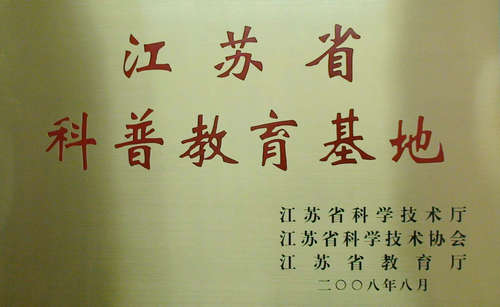 江苏省
科普教育基地
江苏省科学技术厅
江苏省科学技术协会
江苏省教育厅
二〇〇八年八月